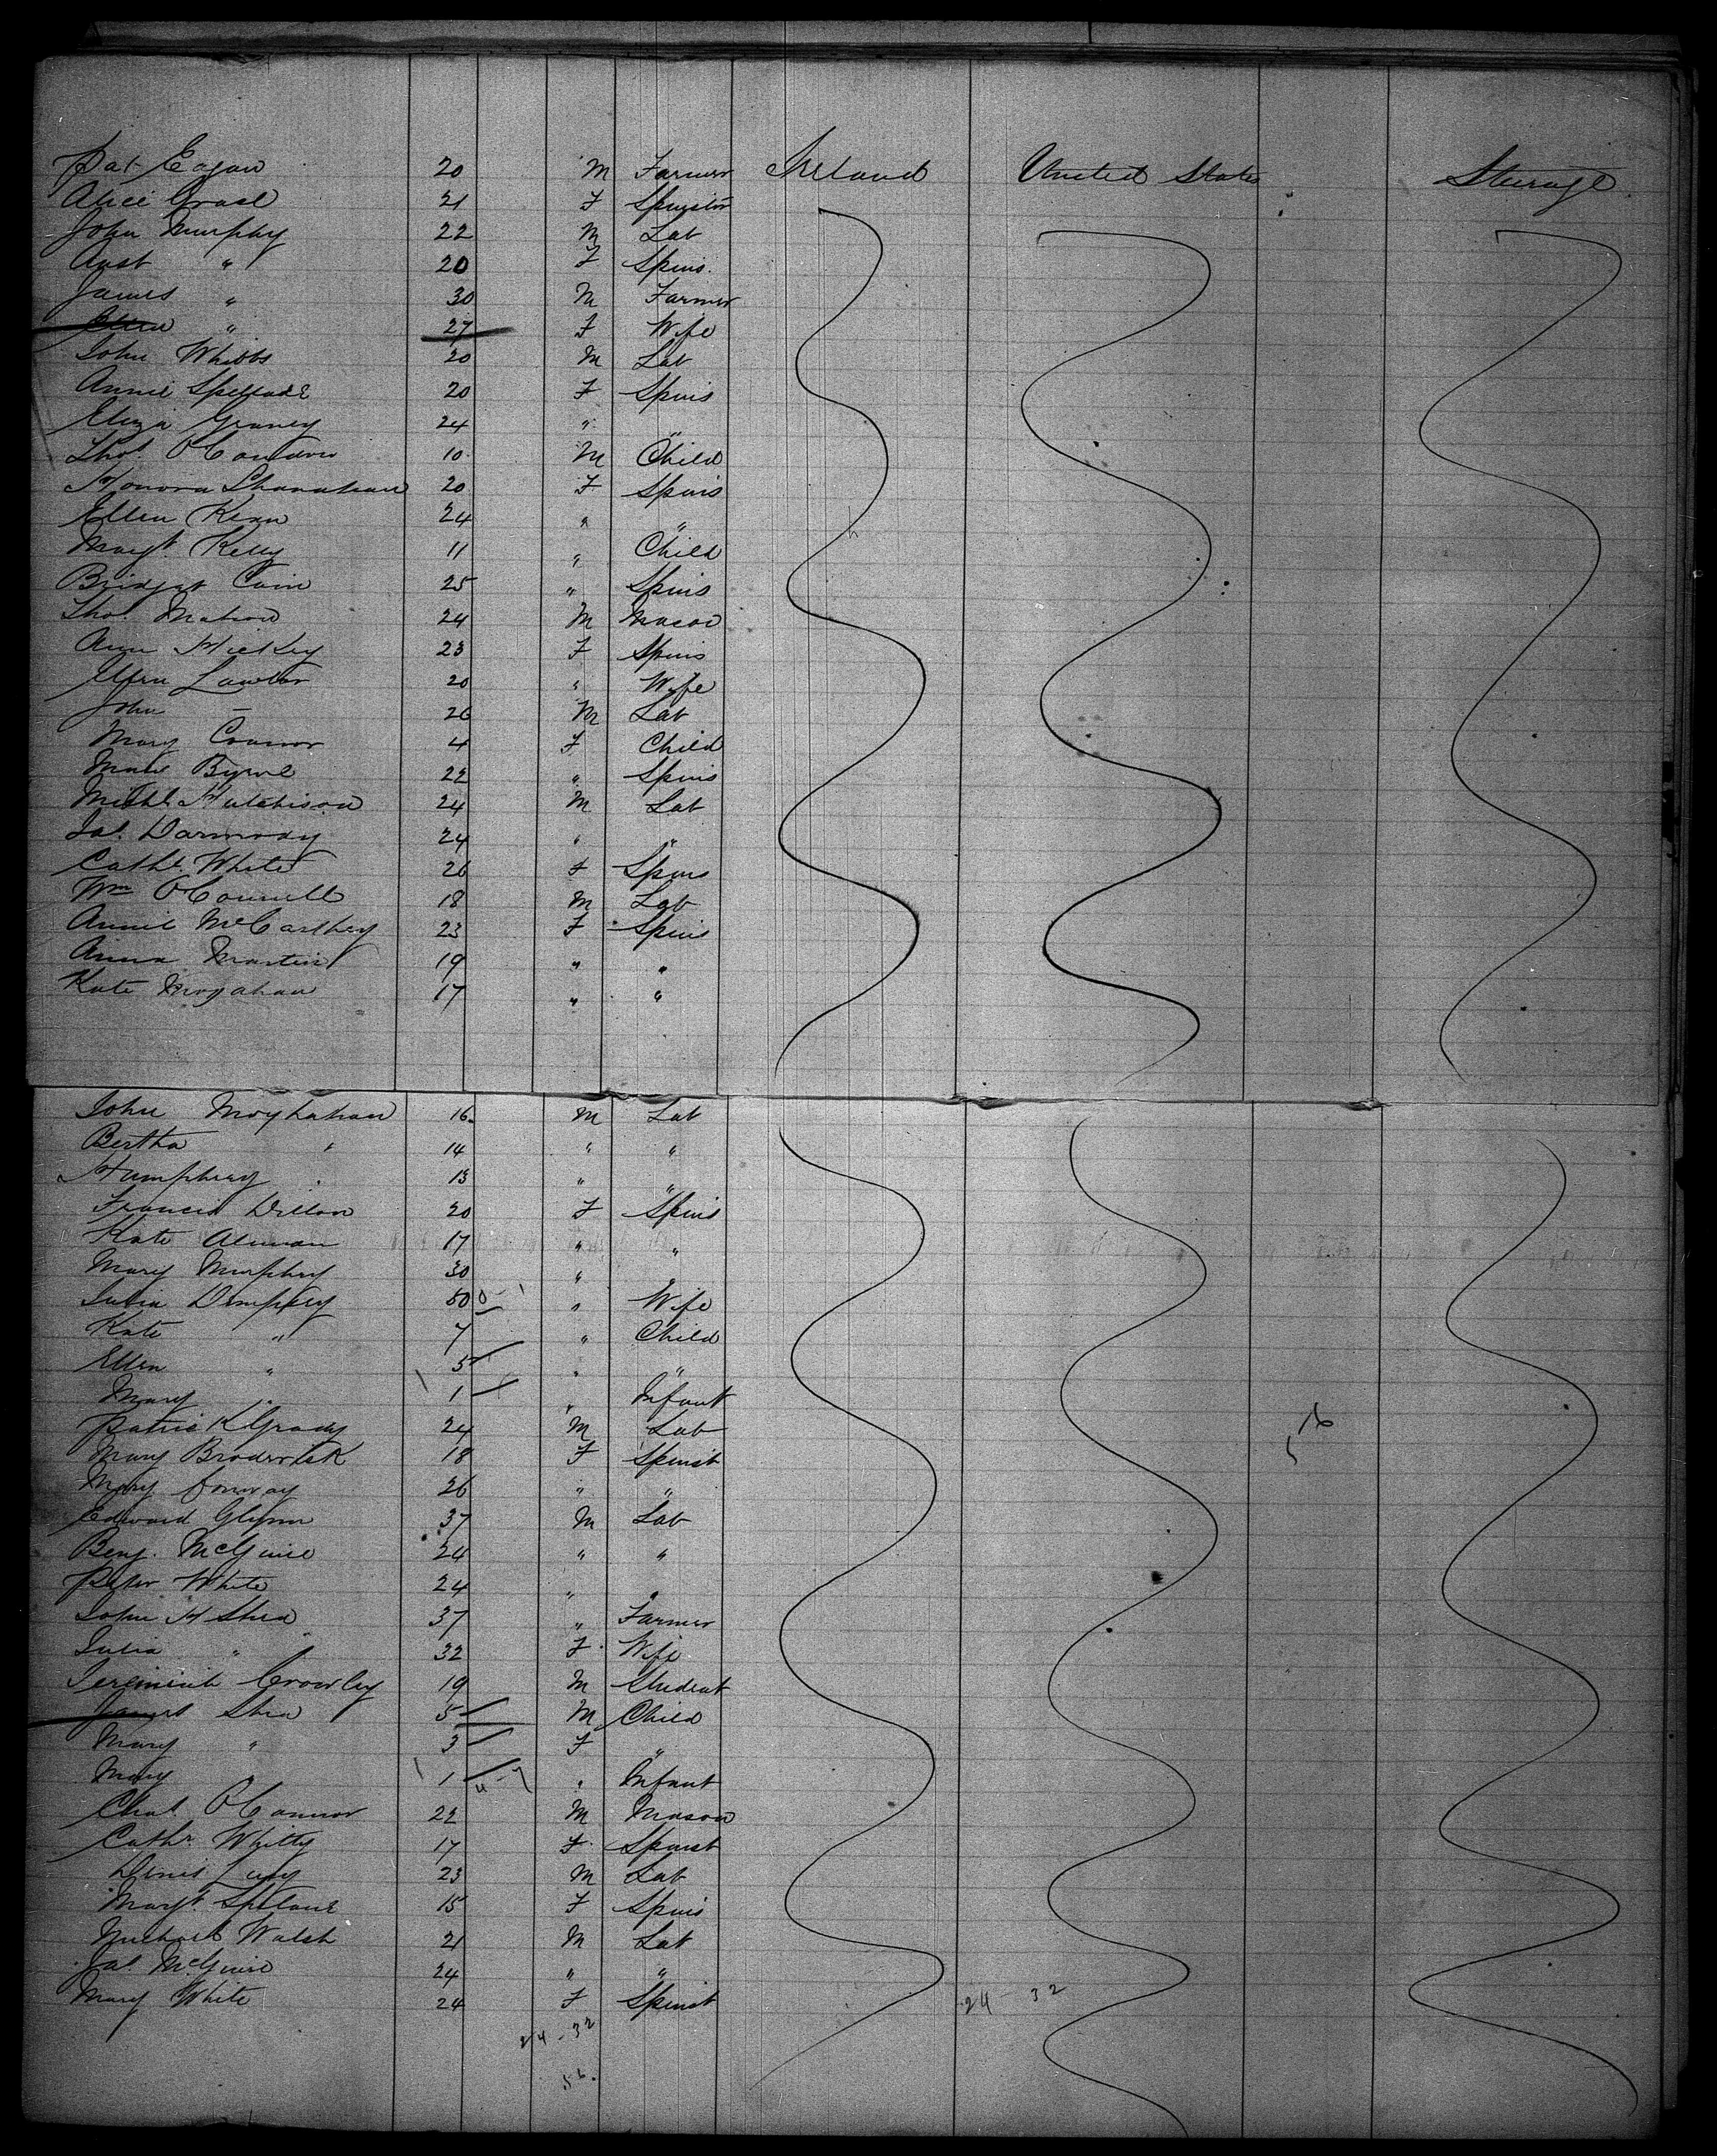 Pat Eagan 20 M Farmer Ireland United States Steerage
Alice Grace 21 F Spinster
John Murphy 22 M Lab
" 20 F Spins.
James " 30 M Farmer
Ellen " 27 F Wife
John Whibbs 20 M Lab
Annie 20 F Spins
Eliza Graney 24 " "
Thos. 10 M Child
Honora Shanahan 20 F Spins
Ellen 24 " "
Margt. Kelly 11 " Child
Bridget Cain 25 " Spins
Thos. 24 M Mason
Ann Hickey 23 F Spins
Ellen Lawler 20 " Wife
John — 26 M Lab
Mary Connor 4 F Child
Byrne 22 " Spins
Michl. Hutchison 24 M Lab
Jas. Darmody 24 " "
Cathe. White 26 F Spins
Wm O'Connell 18 M Lab
Annie McCarthey 23 F Spins
Anna Martin 19 " "
Kate 17 " "
John 16 M Lab
Bertha " 14 " "
Humphrey " 13 " "
Francis Dillon 20 F Spins
Kate 17 " "
Mary Murphey 30 " "
Julia Dempsey 50 " Wife
Kate " 7 " Child
Ellen " 5 " "
Mary " 1 " Infant
Patrick Grady 24 M Lab
Mary Broderick 18 F Spinst
Mary Conway 26 " "
Edward Glynn 37 M Lab
Benj. McGuire 24 " "
Peter White 24 " "
John H Shea 37 " Farmer
Julia " 32 F Wife
Jeremiah Crowley 19 M Student
James Shea 5 M Child
Mary " 3 F "
Mary 1 " Infant
Chas. O'Connor 22 M Mason
Cathr. Whitty 17 F Spinst
Denis 23 M Lab
Margt. Spelane 15 F Spins
Michael Walsh 21 M Lab
Jas. McGuire 24 " "
Mary White 24 F Spinst
24 - 32 24 32
56.